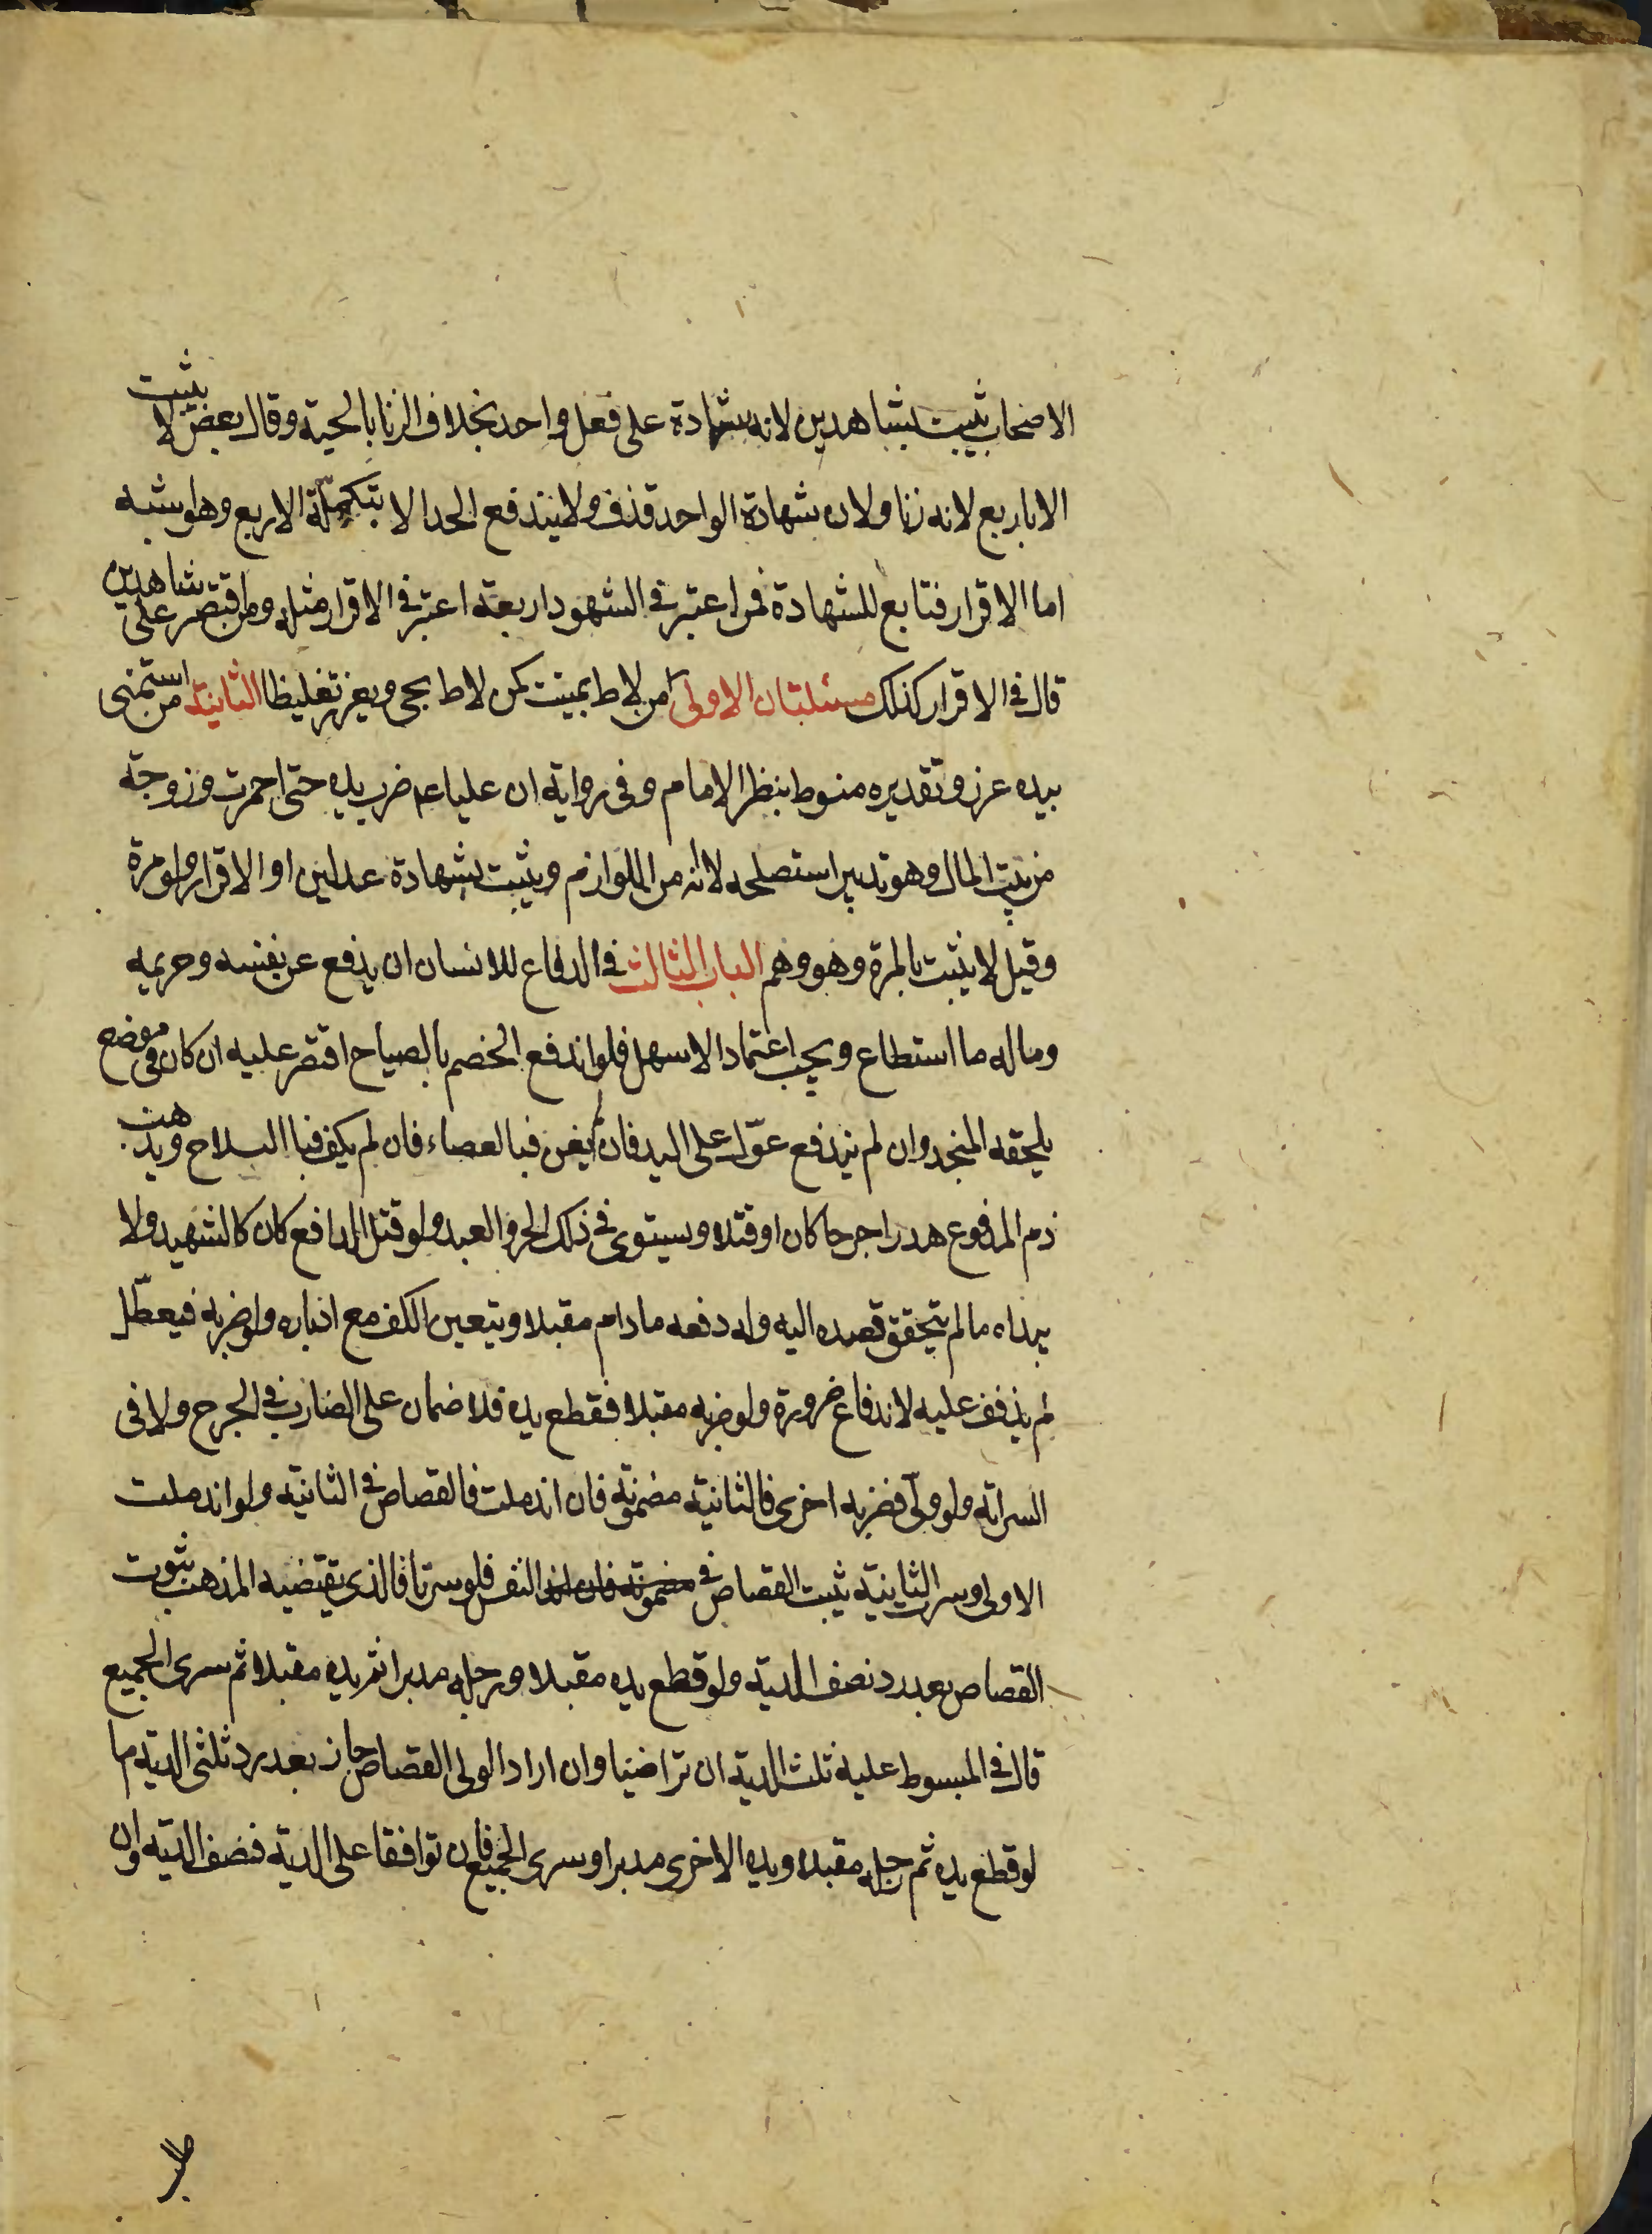 الاصحاب يثبت بشاهدين لانه شهادة على فعل واحد بخلاف الزنا بالحية وقال بعض لا يثبت
الا باربع لانه زنا ولان شهادة الواحد قذف ولا يندفع الحد الا بتكملة الاربع وهو اشبه
اما الاقرار فتابع للشهادة فمن اعتبر في الشهود اربعة اعتبر في الاقرار مثله ومن اقتصر على شاهدين
قال في الاقرار كذلك مسئلتان الاولى من لاط بميت كمن لاط بحى ويعزر تغليظا الثانية من استمنى
بيده عزر وتقديره منوط بنظر الامام وفى رواية ان عليا عم ضرب يده حتى احمرت وزوجة
من بيت المال وهو تدبير استصلحه لا انه من اللوازم ويثبت بشهادة عدلين او الاقرار ولو مرة
وقيل لا يثبت بالمرة وهو وهم الباب الثالث في الدفاع للانسان ان يدفع عن نفسه وحريمه
وماله ما استطاع ويجب اعتماد الاسهل فلو اندفع الخصم بالصياح اقتصر عليه ان كان في موضع
يلحقه المنجد وان لم يندفع عوّل على اليد فان لم يغن فبالعصاء فان لم يكف فبا السلاح ويذهب
دم المدفوع هدرا جرحا كان او قتلا ويستوى في ذلك الحر والعبد ولو قتل الدافع كان كالشهيد ولا
يبداه ما لم يتحقق قصده اليه وله دفعه ما دام مقبلا ويتعين الكف مع ادباره ولو ضربه فيعطّل
لم يذفف عليه لاندفاع ضرورة ولو ضربه مقبلا فقطع يده فلا ضمان على الضارب في الجرح ولا في
السراية ولو ولّى فضربه اخرى فالثانية مضمونة فان اندملت فالقصاص في الثانية ولو اندملت
الاولى وسرت الثاينية ثبت القصاص في مضمونة فان اند النفس فلو سرتا فالذى يقتضيه المذهب ثبوت
القصاص بعد رد نصف الدية ولو قطع يده مقبلا ورجله مدبرا ثم يده مقبلا ثم سرى الجميع
قال في المبسوط عليه ثلث الدية ان تراضيا وان اراد الولى القصاص جاز بعد رد ثلثى الدية ما
لو قطع يده ثم رجله مقبلا ويده الاخرى مدبرا وسرى الجميع فان توافقا على الدية فنصف الدية وان